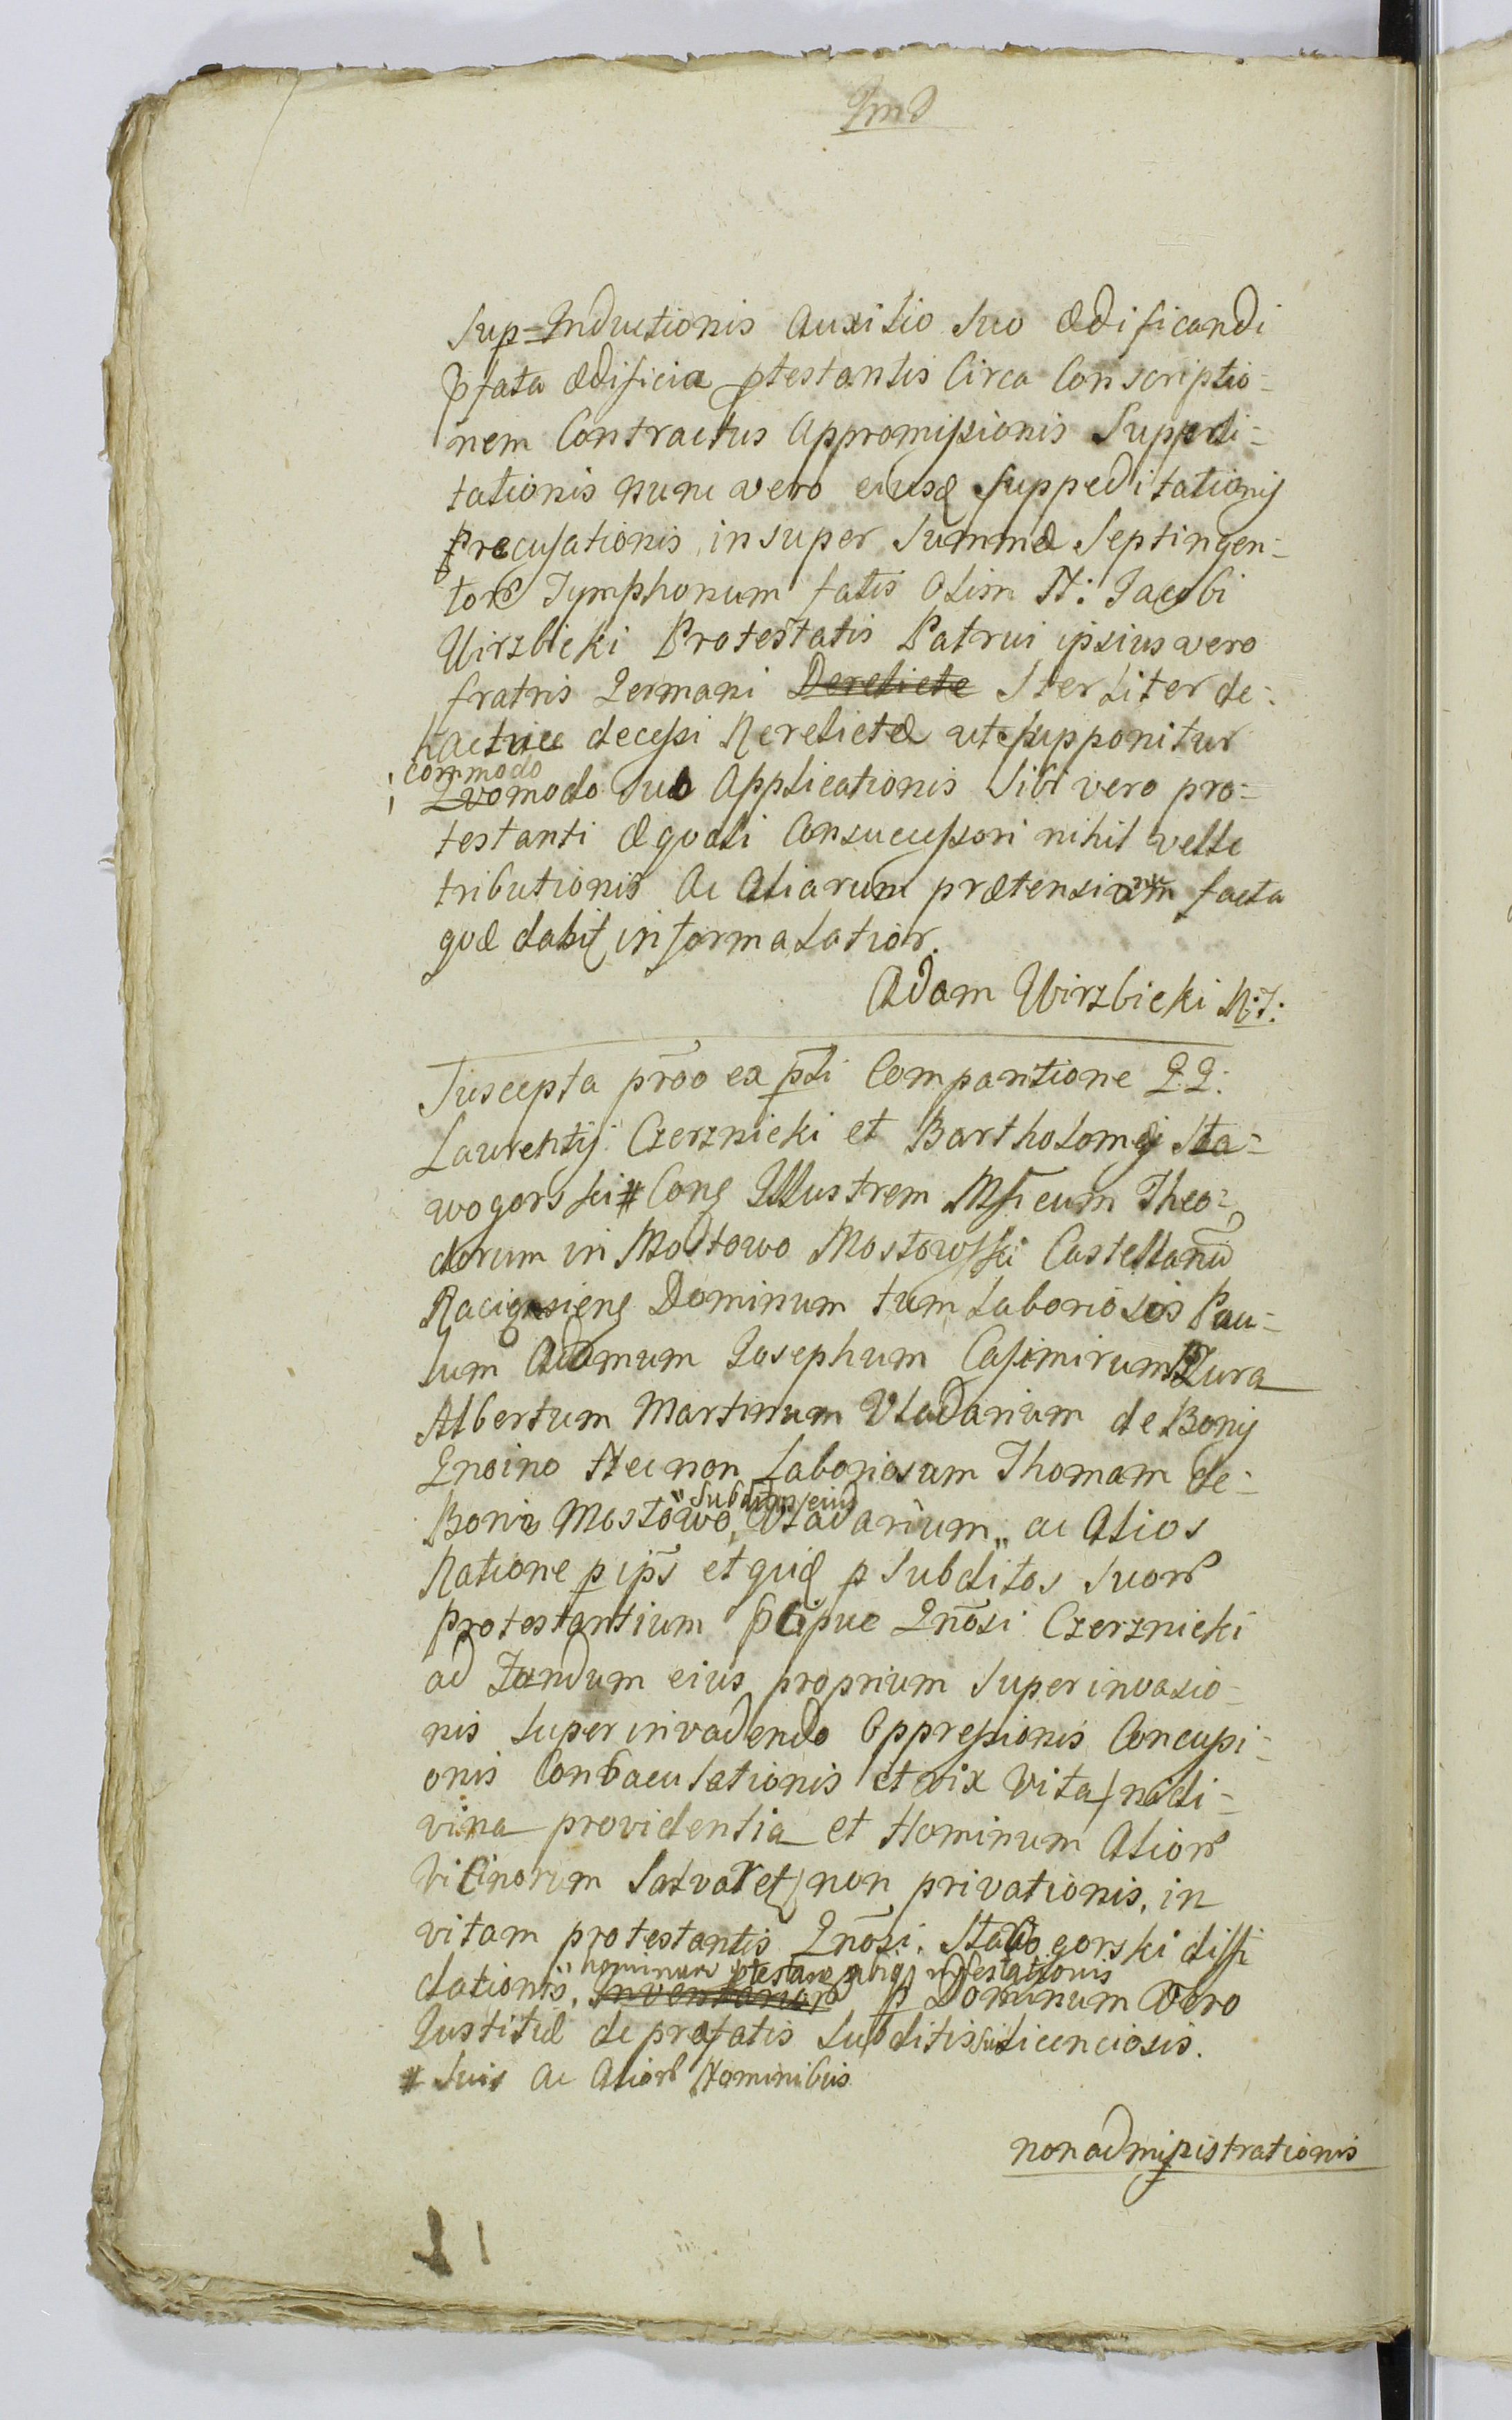 Ind
Sup=Inductionis Auxilio Suo ædificandi
p̄fata ædificia ptestantis Circa Conscriptio=
nem Contractus Appromissionis Suppedi=
tationis nunc vero eiusq Suppeditationis
recusationis insuper Summæ Septingen=
torꝝ Tymphonum fatis olim N: Jacobi
Wirzbicki Protestatis Patrui ipsius vero
fratris Germani Derelicte Sterliter de=
decessi Rerelictæ ut supponitur
commodo
Quomodo Suo Applicationis Sibi vero pro=
testanti æquali Consuccessori nihil velle
tributionis Ac Aliarum prætensionum facta
quæ dabit in forma Latior.
Adam Wirzbicki N:T:
Suscepta prõo ex pšli Comparitione GG:
Laurentij Czerznicki et Bartholomæi Sta=
wogorski # Cong Illustrem Mficum Theo=
dorum in Mostowo Mostowski Castellanũ
Raciąsieng Dominum tum Laboriosos Pau=
lum Adamum Josephum Casimirum Zura
Albertum Martinum Vladarium de Bonis
Gnoino Nec non Laboriosum Thomam de=
Bonis Mostowo, Vladarium „ ac Alios
„Subditos eius
Ratione p ips̄ et quid p Subditos Suorꝝ
protestantium p̄cipue Gnõsi Czerznicki
ad Fundum eius proprium Superinvasio=
nis Superinvadendo Oppressionis Concussi=
onis Conbaculationis et vix vita (nidi=
vina providentia et Hominum Aliorꝝ
Vicinorum Salvaret) non privationis, in
vitam protestantis Gnõsi. Stawogorski diffi
dationis, Inventarior p Dominum Vero
„hominum ptestan infestationis
Justitiæ de prafatis Subditis suis Licenciosis.
# Suis Ac Aliorꝝ Nominibus
nonadministrationis